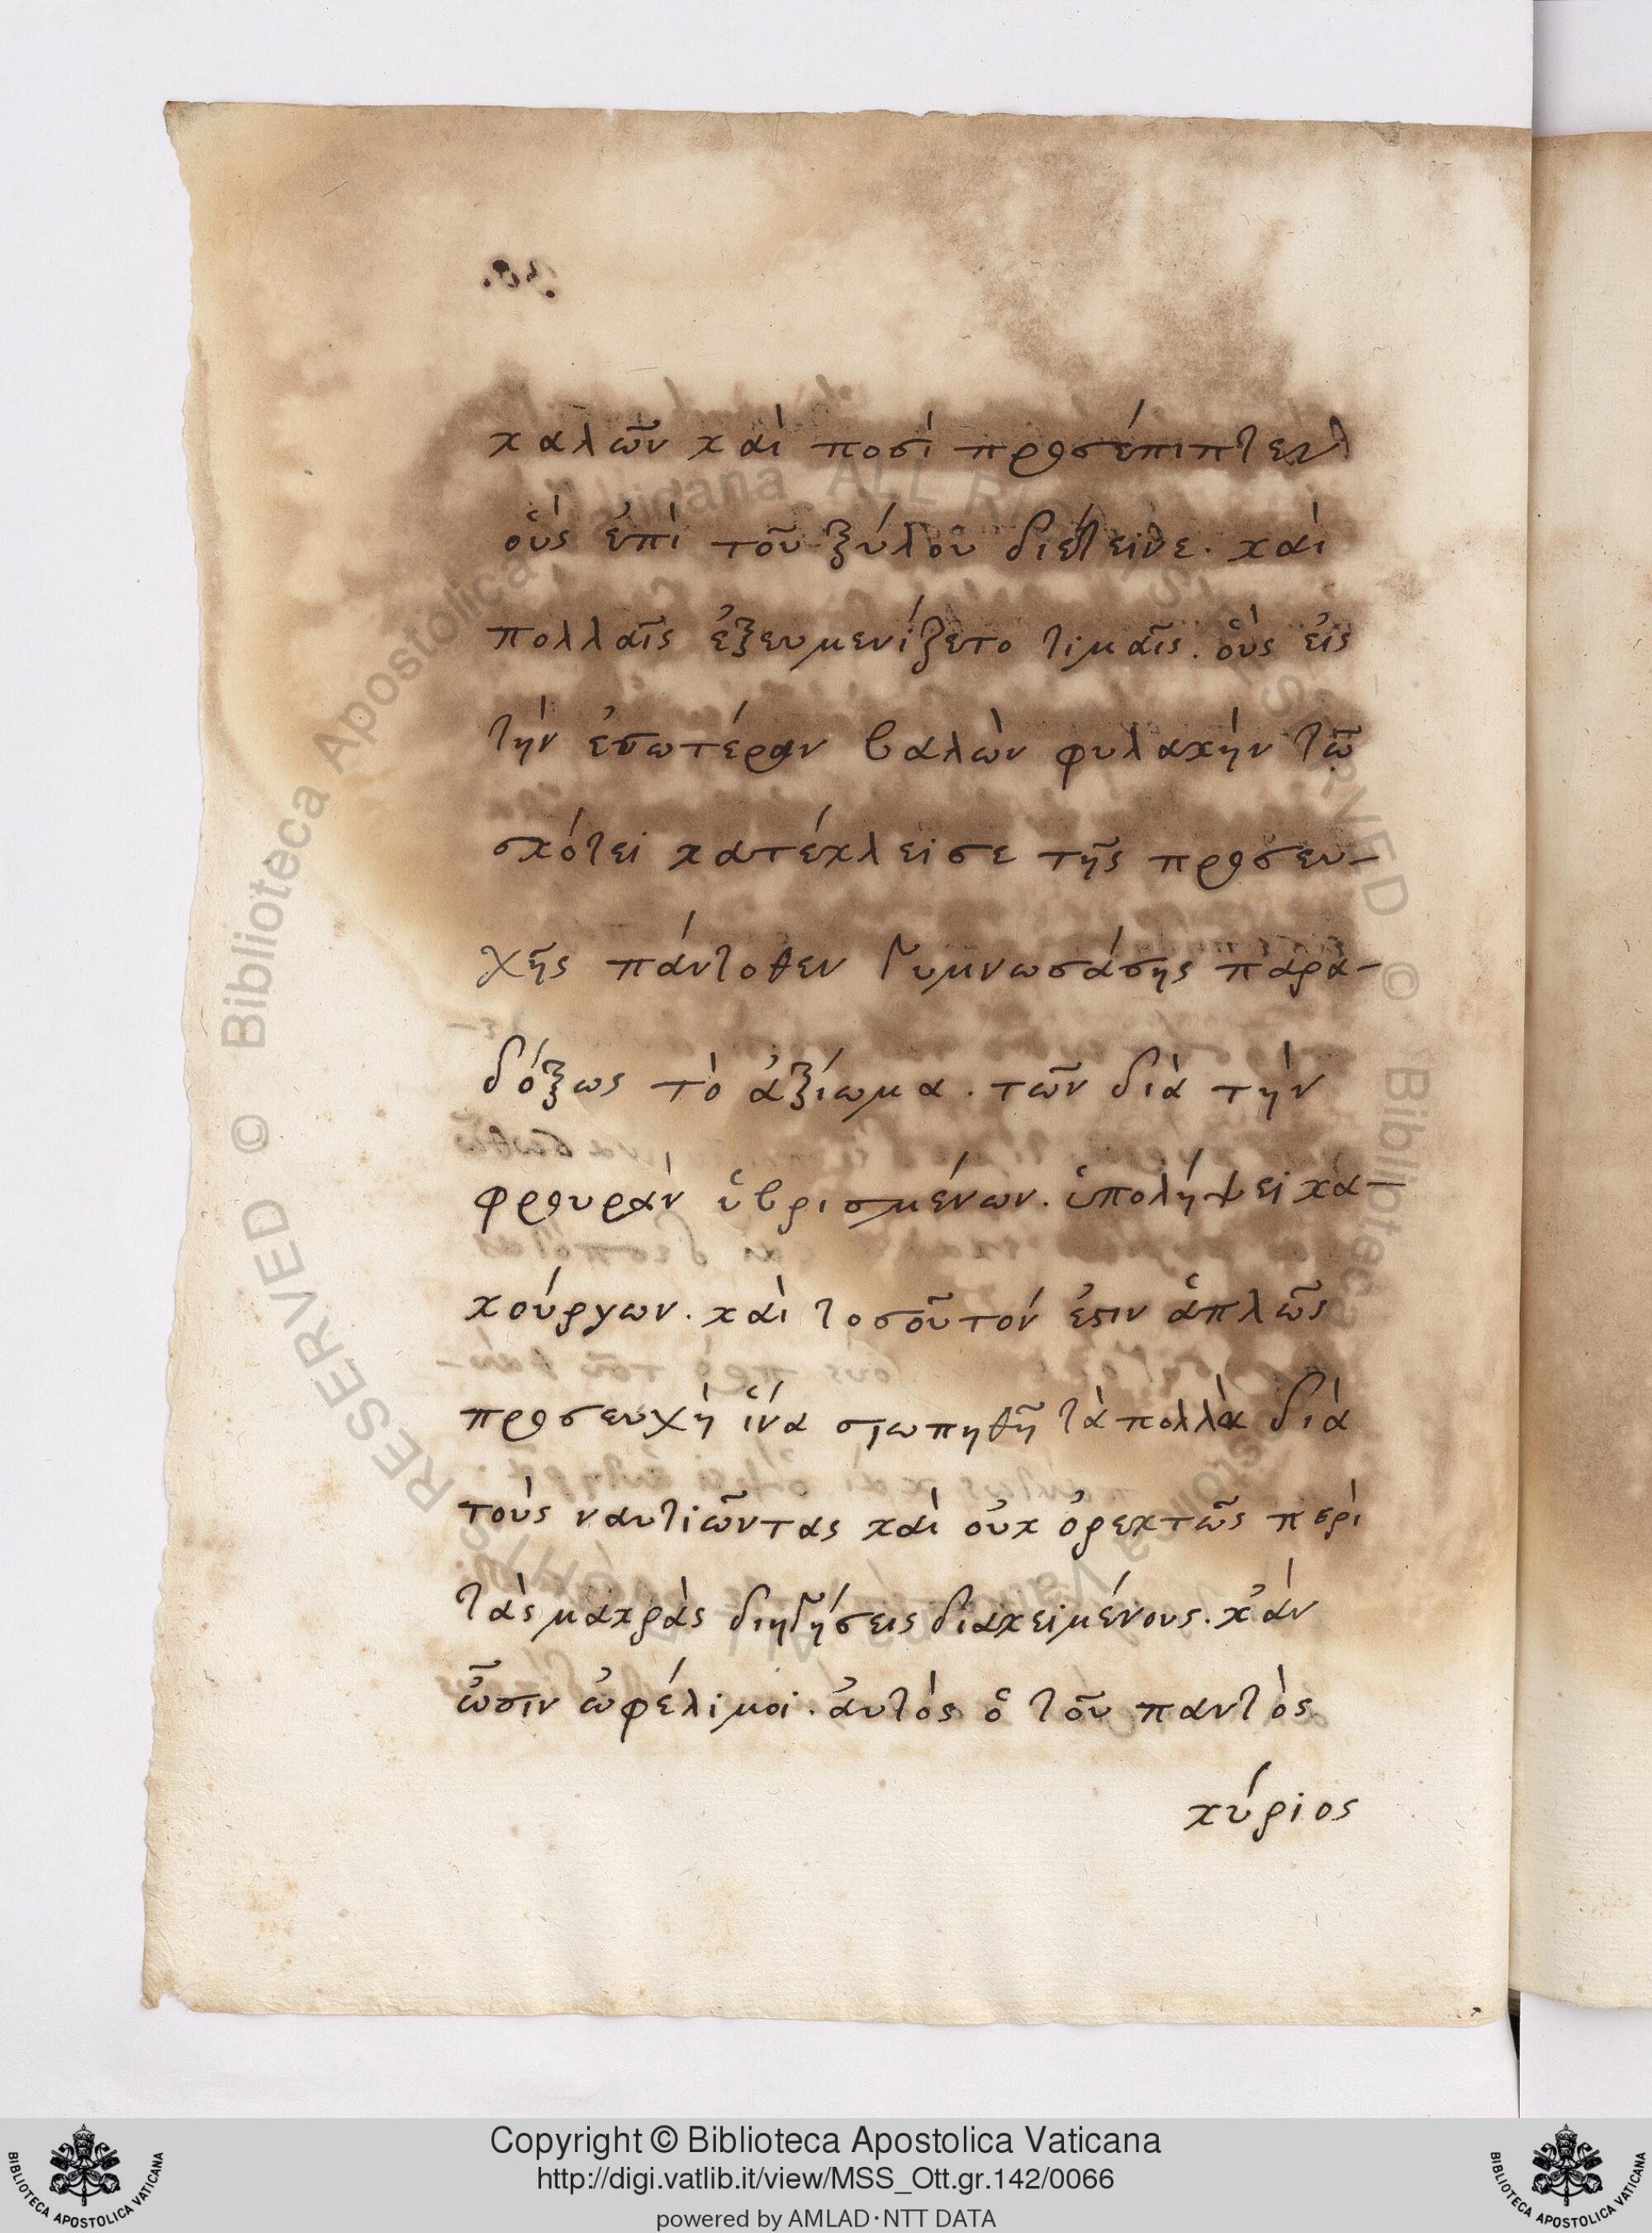 καλῶν καὶ ποσὶ προσέπιπτεν
οὓς ἐπὶ τοῦ ξύλου διέτεινε. καὶ
πολλαῖς ἐξευμενίζετο τιμαῖς. οὓς εἰς
τὴν ἐσωτέραν βαλὼν φυλακὴν τῶ
σκότει κατέκλεισε τῆς προσευ-
χῆς πάντοθεν γυμνωσάσης παρα-
δόξως τὸ ἀξίωμα. τῶν διὰ τὴν
φρουρὰν ὑβρισμένων. ὑπολήψει κα-
κούργων. καὶ τοσοῦτόν ἐστιν ἁπλῶς
προσευχὴ ἵνα σιωπηθῆ τὰ πολλὰ διὰ
τοὺς ναυτιῶντας καὶ οὐκ ὀρεκτῶς περὶ
τὰς μακρὰς διηγήσεις διακειμένους. κἂν
ὦσιν ὠφέλιμοι. ἀυτὸς ὁ τοῦ παντὸς
κύριος
Copyright © Biblioteca Apostolica Vaticana
http://digi.vatlib.it/view/MSS_Ott.gr.142/0066
powered by AMLAD·NTT DATA
BIBLIOTECA APOSTOLICA VATICANA
BIBLIOTECA APOSTOLICA VATICANA